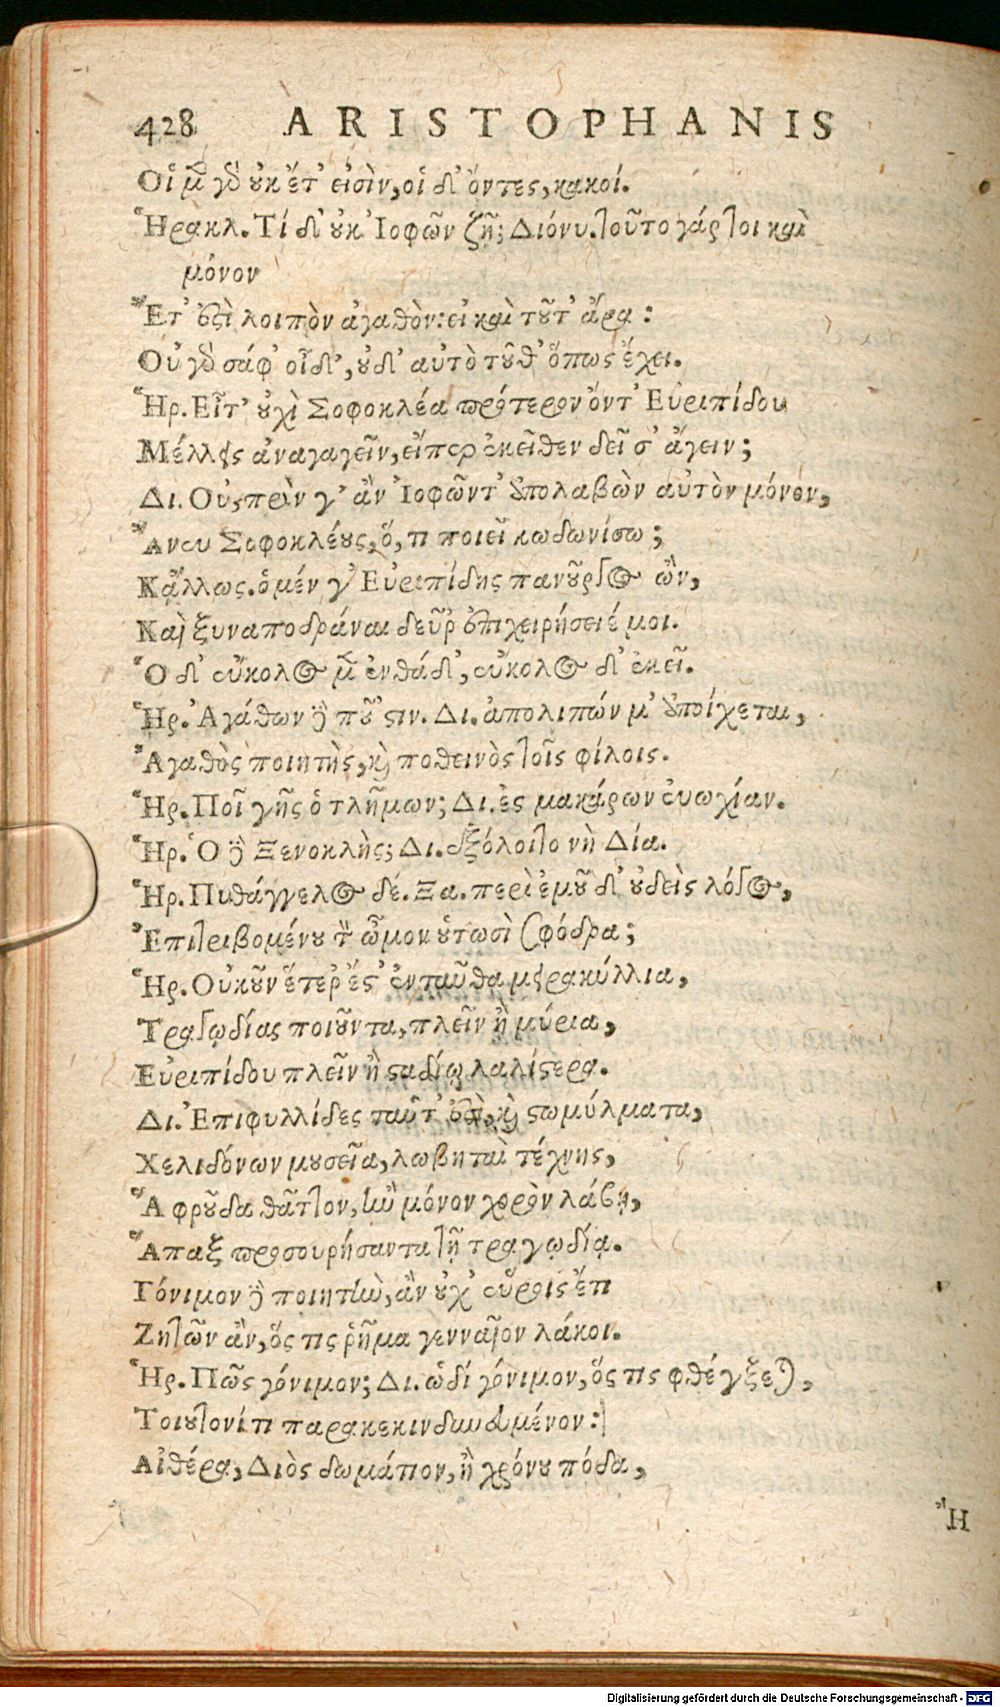 428 ARISTOPHANIS
Οἱ μὲν γὰρ οὐκ ἔτ' εἰσὶν, οἱ δ' ὄντες, κακοί.
Ἡρακλ. Τί δ' οὐκ Ἰοφῶν ζῇ; Διόνυ. τοῦτο γάρ τοι καὶ
μόνον
Ἔτ' ἐστὶ λοιπὸν ἀγαθὸν: εἰ καὶ τοῦτ' ἄρα :
Οὐ γὰρ σάφ' οἶδ', οὐδ' αὐτὸ τοῦθ' ὅπως ἔχει.
Ἡρ. Εἶτ' οὐχὶ Σοφοκλέα πρότερον ὄντ' Εὐριπίδου
Μέλλεις ἀναγαγεῖν, εἴπερ ἐκεῖθεν δεῖ σ' ἄγειν;
Δι. Οὐ, πρὶν γ' ἂν Ἰοφῶντ' ἀπολαβὼν αὐτὸν μόνον,
Ἄνευ Σοφοκλέους, ὅ, τι ποιεῖ κωδωνίσω;
Κᾄλλως. ὁ μέν γ' Εὐριπίδης πανοῦργος ὢν,
Καὶ ξυναποδρᾶναι δεῦρ' ἐπιχειρήσειέ μοι.
Ὁ δ' εὔκολος μὲν ἐνθάδ', εὔκολος δ' ἐκεῖ.
Ἡρ. Ἀγάθων δὲ ποῦ 'στιν. Δι. ἀπολιπών μ' ἀποίχεται,
Ἀγαθὸς ποιητὴς, καὶ ποθεινὸς τοῖς φίλοις.
Ἡρ. Ποῖ γῆς ὁ τλῆμων; Δι. ἐς μακάρων εὐωχίαν.
Ἡρ. Ὁ δὲ Ξενοκλὴς; Δι. ἐξόλοιτο νὴ Δία.
Ἡρ. Πυθάγγελος δέ. Ξα. περὶ ἐμοῦ δ' οὐδεὶς λόγος,
Ἐπιτριβομένου τὸν ὦμον οὑτωσὶ σφόδρα;
Ἡρ. Οὐκοῦν ἕτερ' ἔστ' ἐνταῦθα μειρακύλλια,
Τραγῳδίας ποιοῦντα, πλεῖν ἢ μύρια,
Εὐριπίδου πλεῖν ἢ σταδίῳ λαλίστερα.
Δι. Ἐπιφυλλίδες ταῦτ' ἐστὶ, καὶ στωμύλματα,
Χελιδόνων μουσεῖα, λωβηταὶ τέχνης,
Ἃ φροῦδα θᾶττον, ἢν μόνον χορὸν λάβῃ,
Ἅπαξ προσουρήσαντα τῇ τραγῳδίᾳ.
Γόνιμον δὲ ποιητὴν, ἂν οὐχ' εὕροις ἔτι
Ζητῶν ἂν, ὅς τις ῥῆμα γενναῖον λάκοι.
Ἡρ. Πῶς γόνιμον; Δι. ὡδί γόνιμον, ὅς τις φθέγξεται,
Τοιουτονί τι παρακεκινδυνευμένον:
Αἰθέρα, Διὸς δωμάτιον, ἢ χρόνου πόδα,
Ἢ
Digitalisierung gefördert durch die Deutsche Forschungsgemeinschaft - DFG